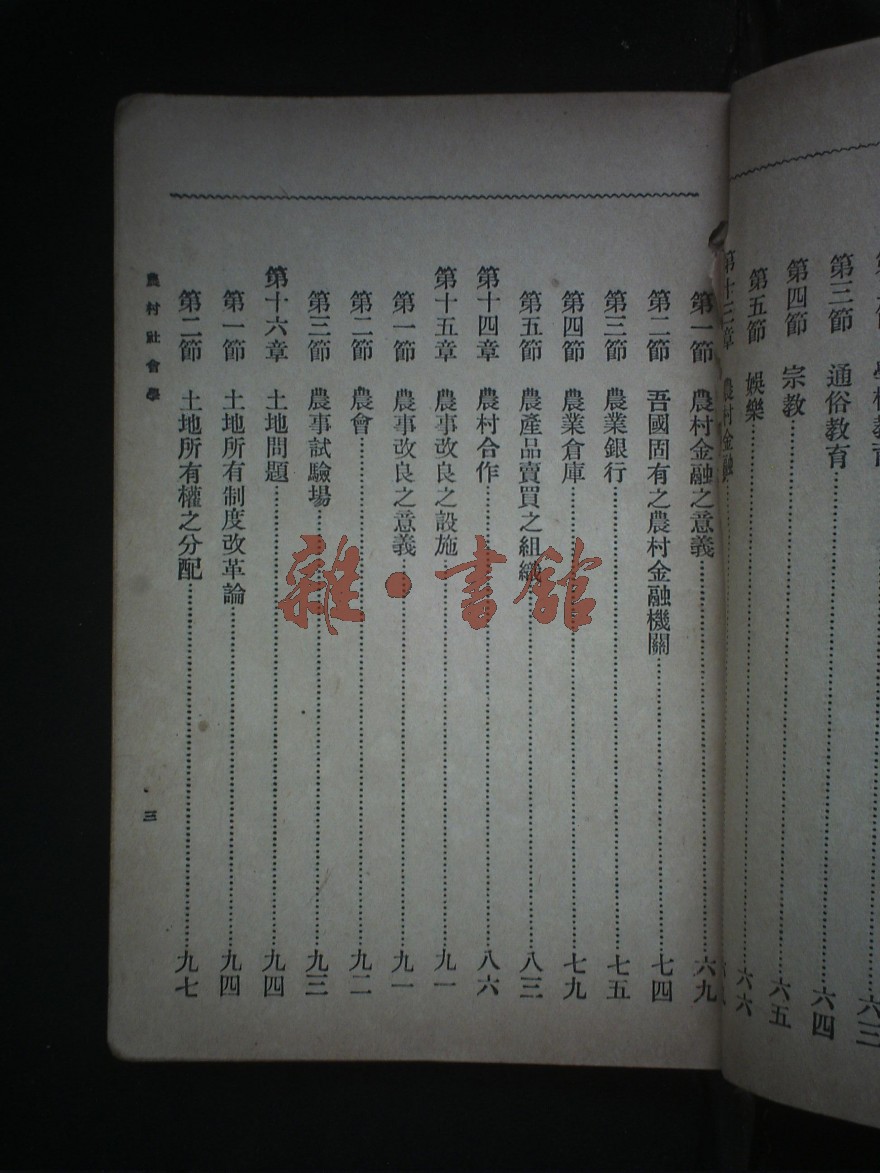 第三節 通俗教育……六四
第四節 宗教……六五
第五節 娛樂……六六
第十三章 農村金融……
第一節 農村金融之意義……六九
第二節 吾國固有之農村金融機關……七四
第三節 農業銀行……七五
第四節 農業倉庫……七九
第五節 農產品賣買之組織……八三
第十四章 農村合作……八六
第十五章 農事改良之設施……九一
第一節 農事改良之意義……九一
第二節 農會……九二
第三節 農事試驗場……九三
第十六章 土地問題……九四
第一節 土地所有制度改革論……九四
第二節 土地所有權之分配……九七
農村社會學
三
雜·書館